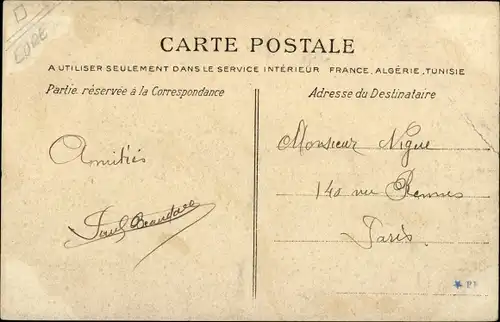 CARTE POSTALE
A UTILISER SEULEMENT DANS LE SERVICE INTÉRIEUR FRANCE, ALGÉRIE, TUNISIE
Partie réservée à la Correspondance
Adresse du Destinataire
Amitiés
Paul
Monsieur Nigue
140 rue Rennes
Paris.